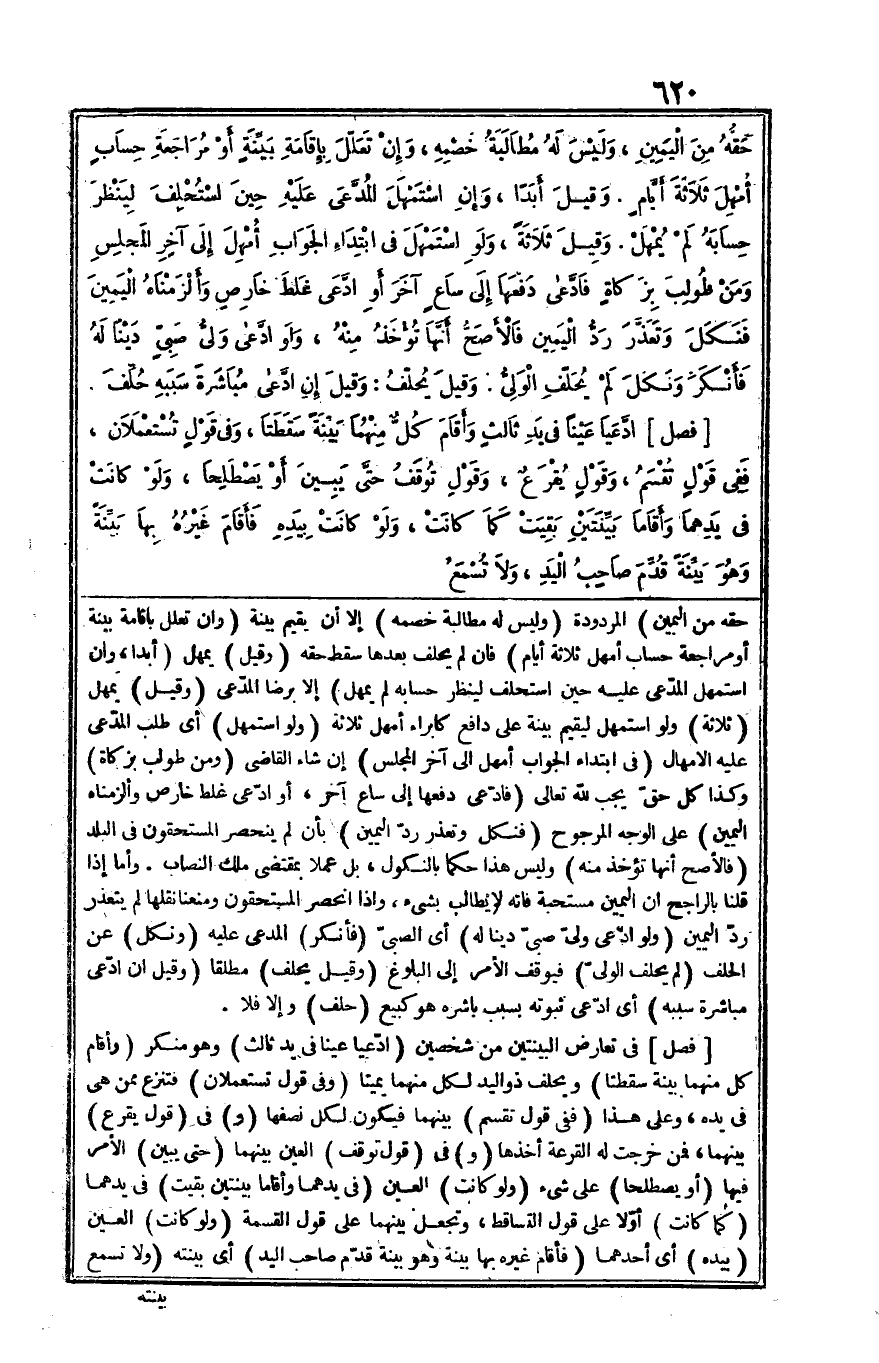 ٦٢٠
حَقُّهُ مِنَ الْيَمِينِ ، وَلَيْسَ لَهُ مُطَالَبَةُ خَصْمِهِ ، وَإِنْ تَعَلَّلَ بِإِقَامَةِ بَيِّنَةٍ أَوْ مُرَاجَعَةِ حِسَابٍ
أُمْهِلَ ثَلَاثَةَ أَيَّامٍ . وَقِيلَ أَبَدًا ، وَإِنِ اسْتَمْهَلَ الْمُدَّعَى عَلَيْهِ حِينَ اسْتُحْلِفَ لِيَنْظُرَ
حِسَابَهُ لَمْ يُمْهَلْ . وَقِيلَ ثَلَاثَةً ، وَلَوِ اسْتَمْهَلَ فِى ابْتِدَاءِ الْجَوَابِ أُمْهِلَ إِلَى آخِرِ الْمَجْلِسِ
وَمَنْ طُولِبَ بِزَكَاةٍ فَادَّعَى دَفْعَهَا إِلَى سَاعٍ آخَرَ أَوِ ادَّعَى غَلَطَ خَارِصٍ وَأَلْزَمْنَاهُ الْيَمِينَ
فَنَكَلَ وَتَعَذَّرَ رَدُّ الْيَمِينِ فَالْأَصَحُّ أَنَّهَا تُؤْخَذُ مِنْهُ ، وَلَوِ ادَّعَى وَلِىُّ صَبِىٍّ دَيْنًا لَهُ
فَأَنْكَرَ وَنَكَلَ لَمْ يُحَلَّفِ الْوَلِىُّ . وَقِيلَ يُحَلَّفُ : وَقِيلَ إِنِ ادَّعَى مُبَاشَرَةَ سَبَبِهِ حُلِّفَ .
[ فصل ] ادَّعَيَا عَيْنًا فِى يَدِ ثَالِثٍ وَأَقَامَ كُلٌّ مِنْهُمَا بَيِّنَةً سَقَطَتَا ، وَفِى قَوْلٍ تُسْتَعْمَلَانِ ،
فَفِى قَوْلٍ تُقْسَمُ ، وَقَوْلٍ يُقْرَعُ ، وَقَوْلٍ تُوقَفُ حَتَّى يَبِينَ أَوْ يَصْطَلِحَا ، وَلَوْ كَانَتْ
فِى يَدِهِمَا وَأَقَامَا بَيِّنَتَيْنِ بَقِيَتْ كَمَا كَانَتْ ، وَلَوْ كَانَتْ بِيَدِهِ فَأَقَامَ غَيْرُهُ بِهَا بَيِّنَةً
وَهُوَ بَيِّنَةً قُدِّمَ صَاحِبُ الْيَدِ ، وَلَا تُسْمَعُ
حقه من اليمين ) المردودة ( وليس له مطالبة خصمه ) إلا أن يقيم بينة ( وان تعلل باقامة بينة
أو مراجعة حساب أمهل ثلاثة أيام ) فان لم يحلف بعدها سقط حقه ( وقيل ) يمهل ( أبدا ، وان
استمهل المدّعى عليه حين استحلف لينظر حسابه لم يمهل ) إلا برضا المدّعى ( وقيل ) يمهل
( ثلاثة ) ولو استمهل ليقيم بينة على دافع كابراء أمهل ثلاثة ( ولو استمهل ) أى طلب المدّعى
عليه الامهال ( فى ابتداء الجواب أمهل الى آخر المجلس ) إن شاء القاضى ( ومن طولب بزكاة )
وكذا كل حقّ يجب لله تعالى ( فادّعى دفعها إلى ساع آخر ، أو ادّعى غلط خارص وألزمناه
اليمين ) على الوجه المرجوح ( فنكل وتعذر ردّ اليمين ) بأن لم ينحصر المستحقون فى البلد
( فالأصح أنها تؤخذ منه ) وليس هذا حكما بالنكول ، بل عملا بمقتضى ملك النصاب . وأما إذا
قلنا بالراجح ان اليمين مستحبة فانه لا يطالب بشىء ، واذا انحصر المستحقون ومنعنا نقلها لم يتعذر
ردّ اليمين ( ولو ادّعى ولىّ صبىّ دينا له ) أى الصبىّ ( فأنكر ) المدعى عليه ( ونكل ) عن
الحلف ( لم يحلف الولىّ ) فيوقف الأمر إلى البلوغ ( وقيل يحلف ) مطلقا ( وقيل ان ادّعى
مباشرة سببه ) أى ادّعى ثبوته بسبب باشره هو كبيع ( حلف ) و إلا فلا .
[ فصل ] فى تعارض البينتين من شخصين ( ادّعيا عينا فى يد ثالث ) وهو منكر ( وأقام
كل منهما بينة سقطتا ) و يحلف ذو اليد لكل منهما يمينا ( وفى قول تستعملان ) فتنزع ممن هى
فى يده ، وعلى هذا ( ففى قول تقسم ) بينهما فيكون لكل نصفها ( و ) فى ( قول يقرع )
بينهما ، فمن خرجت له القرعة أخذها ( و ) فى ( قول توقف ) العين بينهما ( حتى يبين ) الأمر
فيها ( أو يصطلحا ) على شىء ( ولو كانت ) العين ( فى يدهما وأقاما بينتين بقيت ) فى يدهما
( كما كانت ) أوّلا على قول التساقط ، وتجعل بينهما على قول القسمة ( ولو كانت ) العين
( بيده ) أى أحدهما ( فأقام غيره بها بينة وهو بينة قدّم صاحب اليد ) أى بينته ( ولا تسمع
بينته